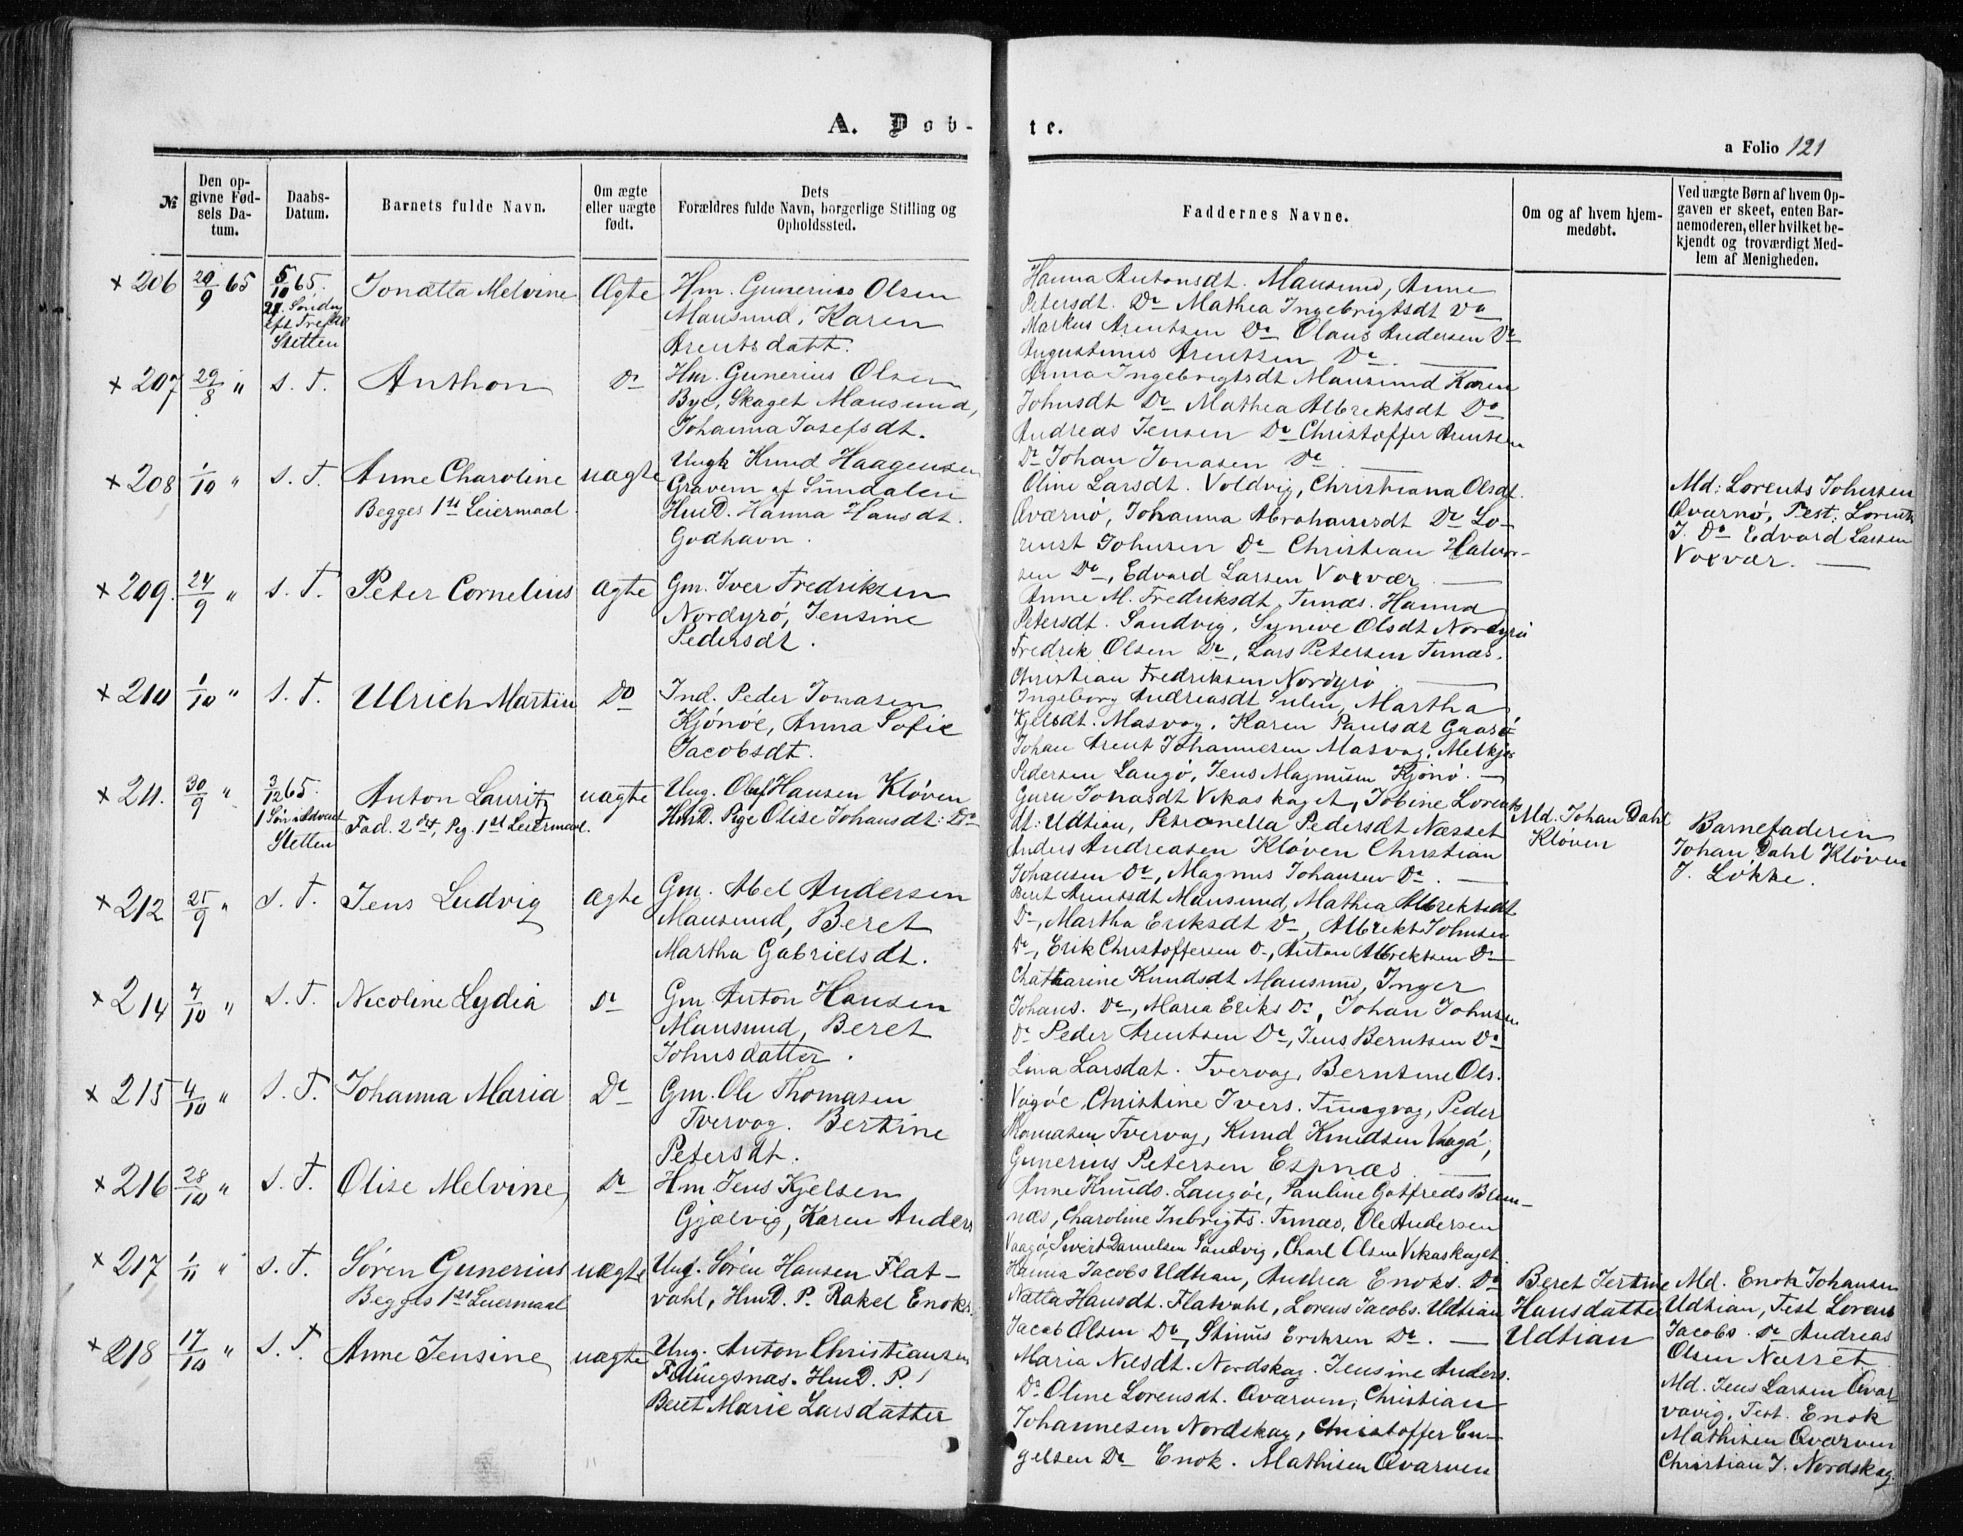 A. Døb-
te.
a Folio 121
№
Den op-
givne Fød-
sels Da-
tum.
Daabs-
Datum.
Barnets fulde Navn.
Om ægte
eller uægte
født.
Dets
Forældres fulde Navn, borgerlige Stilling og
Opholdssted.
Faddernes Navne.
Om og af hvem hjem-
medøbt.
Ved uægte Børn af hvem Op-
gaven er skeet, enten Bar-
nemoderen, eller hvilket be-
kjendt og troværdigt Med-
lem af Menigheden.
× 206 20/9 65 5/10 65.
Stetten
Jonætta Melvine Ægte
Hm. Gunerius Olsen
Mausund, Karen
Arentsdatt.
Hanna Antonsdt. Mausund, Anne
Petersdt. Do Mathea Ingebrigtsdt Do
Markus Arentsen Do Olaus Andersen Do
Augustinus Arentsen Do
× 207 29/8 " S. T. Anthon Do
Hm. Gunerius Olsen
Bye, Skaget Mausund,
Johanna Josefsdt.
Anna Ingebrigtsdt Mausund Karen
Johnsdt Do Mathea Albrektsdt Do
Andreas Jensen Do Christoffer Arentsen
Do Johan Jonasen Do
× 208 1/10 " S. T. Anne Charoline uægte
Begges 1ste Leiermaal.
Ungk Knud Haagensen
Gravem af Sundalen
HmD. Hanna Hansdt.
Godhavn.
Oline Larsdt. Voldvig, Christiana Olsdt.
Qværnø, Johanna Abrahamsdt Do Lo-
renst Johnsen Do Christian Halvor-
sen Do, Edvard Larsen Voxvær
Md: Lorents Johnsen
Qværnø, Test: Lorents
J. Do Edvard Larsen
Voxvær.
× 209. 24/9 " S. T. Peter Cornelius Ægte
Gm. Iver Fredriksen
Nordyrö, Jensine
Pedersdt.
Anne M. Fredriksdt Tunæs. Hanna
Petersdt. Sandvig, Syneve Olsdt Nordyrö
Fredrik Olsen Do, Lars Petersen Tunæs.
Christian Fredriksen Nordyrö
× 210 1/10 " S. T. Ulrich Martin Do
Ind. Peder Jonasen
Kjönöe, Anna Sofie
Jacobsdt.
Ingeborg Andreasdt Sulen, Martha
Kjelsdt. Masvog. Karen Paulsdt Gaasø
Johan Arent Johannesen Masvog, Melkjer
Pedersen Langö, Jens Magnusen Kjönö.
× 211. 30/9 " 3/12 65.
1 Søn. Advent
Stetten
Anton Lauritz uægte
Fad. 2det, Pig. 1ste Leiermaal.
Ung. Oluf Hansen Kløven
HmD. Pige Olise Johansdt: Do
Guru Jonasdt Vikaskaget, Jobine Lorents
dt: Udtian, Petronella Pedersdt Næsset
Anders Andreasen Kløven Christian
Johansen Do, Magnus Johansen Do.
Md. Johan Dahl
Kløven
Barnefaderen
Johan Dahl Kløven
J. Løkke.
× 212 25/9 " S. T. Jens Ludvig Ægte
Gm. Abel Andersen
Mausund, Beret
Martha Gabrielsdt.
Beret Arentsdt Mausund, Mathea Albrektsdt
Do, Martha Eriksdt Do, Albrekt Johnsen
Do, Erik Christoffersen Do, Anton Albrektsen Do
× 214 7/10 " S. T. Nicoline Lydia Do
Gm Anton Hansen
Mausund, Beret
Johnsdatter.
Chatharine Knudsdt Mausund, Inger
Johans. Do, Maria Eriks Do, Johan Johnsen
Do Peder Arentsen Do, Jens Berntsen Do
× 215 4/10 " S. T. Johanna Maria Do
Gm. Ole Thomasen
Tvervog. Bertine
Petersdt.
Lina Larsdat. Tvervog, Berntine Ols.
Vogöe Christine Ivers. Tungvog, Peder
Thomasen Tvervog, Knud Knudsen Vaagö,
Gunerius Petersen Espnæs
× 216 28/10 " S. T. Olise Melvine Do
Hm. Jens Kjelsen
Gjælvig, Karen Anders
Anne Knuds. Langöe, Pauline Gotfreds Brem-
næs, Charoline Inbrigts. Tunæs, Ole Andersen
Vaagö, Sivert Danielsen Sandvig, Charl Olsen Vikaskaget
× 217 1/11 " S. T. Søren Gunerius uægte
Begges 1ste Leiermaal
Ung. Søren Hansen Flat-
vahl, HmD. P. Rakel Enoks.
Hanna Jacobs Udtian, Andrea Enoks. Do
Natta Hansdt. Flatvahl, Lorens Jacobs. Udtian
Jacob Olsen Do, Stinus Eriksen Do.
Beret Jertine
Hansdatter
Udtian
Md. Enok Johansen
Udtian, Test Lorens
Jacobs. Do Andreas
Olsen Næsset
× 218 17/10 " S. T. Anne Jensine uægte
Ung. Anton Christiansen
Fillingsnæs. HmD. P.
Beret Marie Larsdatter
Maria Nilsdt. Nordskag. Jensine Anders.
Do Oline Lorensdt. Qvarven, Christian
Johannesen Nordskag, Christoffer En-
gelsen Do Enok. Mathisen Qvarven
Md. Jens Larsen Qvar
vavig, Test. Enok
Mathisen Qvarven
Christian J. Nordskag.